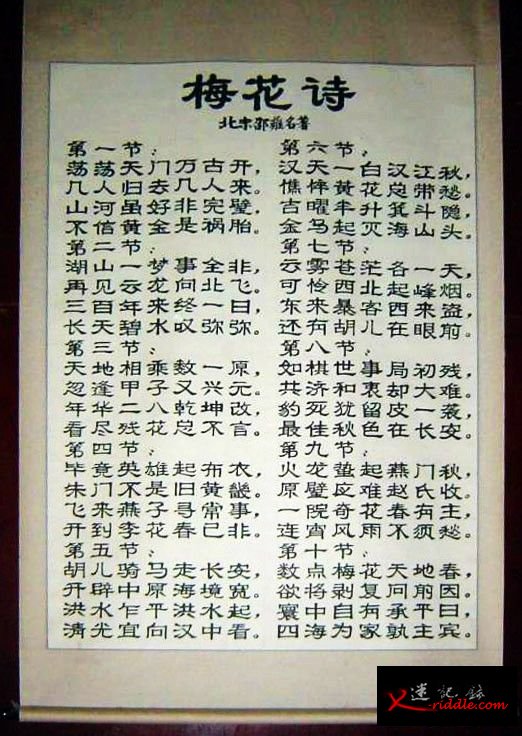 梅花诗
北宋邵雍名著
第一节：
荡荡天门万古开，
几人归去几人来。
山河虽好非完璧，
不信黄金是祸胎。
第二节：
湖山一梦事全非，
再见云龙向北飞。
三百年来终一日，
长天碧水叹弥弥。
第三节：
天地相乘数一原，
忽逢甲子又兴元。
年华二八乾坤改，
看尽残花总不言。
第四节：
毕竟英雄起布衣，
朱门不是旧黄畿。
飞来燕子寻常事，
开到李花春已非。
第五节：
胡儿骑马走长安，
开辟中原海境宽。
洪水乍平洪水起，
清光宜向汉中看。
第六节：
汉天一白汉江秋，
憔悴黄花总带愁。
吉曜半升箕斗隐，
金乌起灭海山头。
第七节：
云雾苍茫各一天，
可怜西北起烽烟。
东来暴客西来盗，
还有胡儿在眼前。
第八节：
如棋世事局初残，
共济和衷却大难。
豹死犹留皮一袭，
最佳秋色在长安。
第九节：
火龙蛰起燕门秋，
原璧应难赵氏收。
一院奇花春有主，
连宵风雨不须愁。
第十节：
数点梅花天地春，
欲将剥复问前因。
寰中自有承平日，
四海为家孰主宾。
迷記錄
x-riddle.com